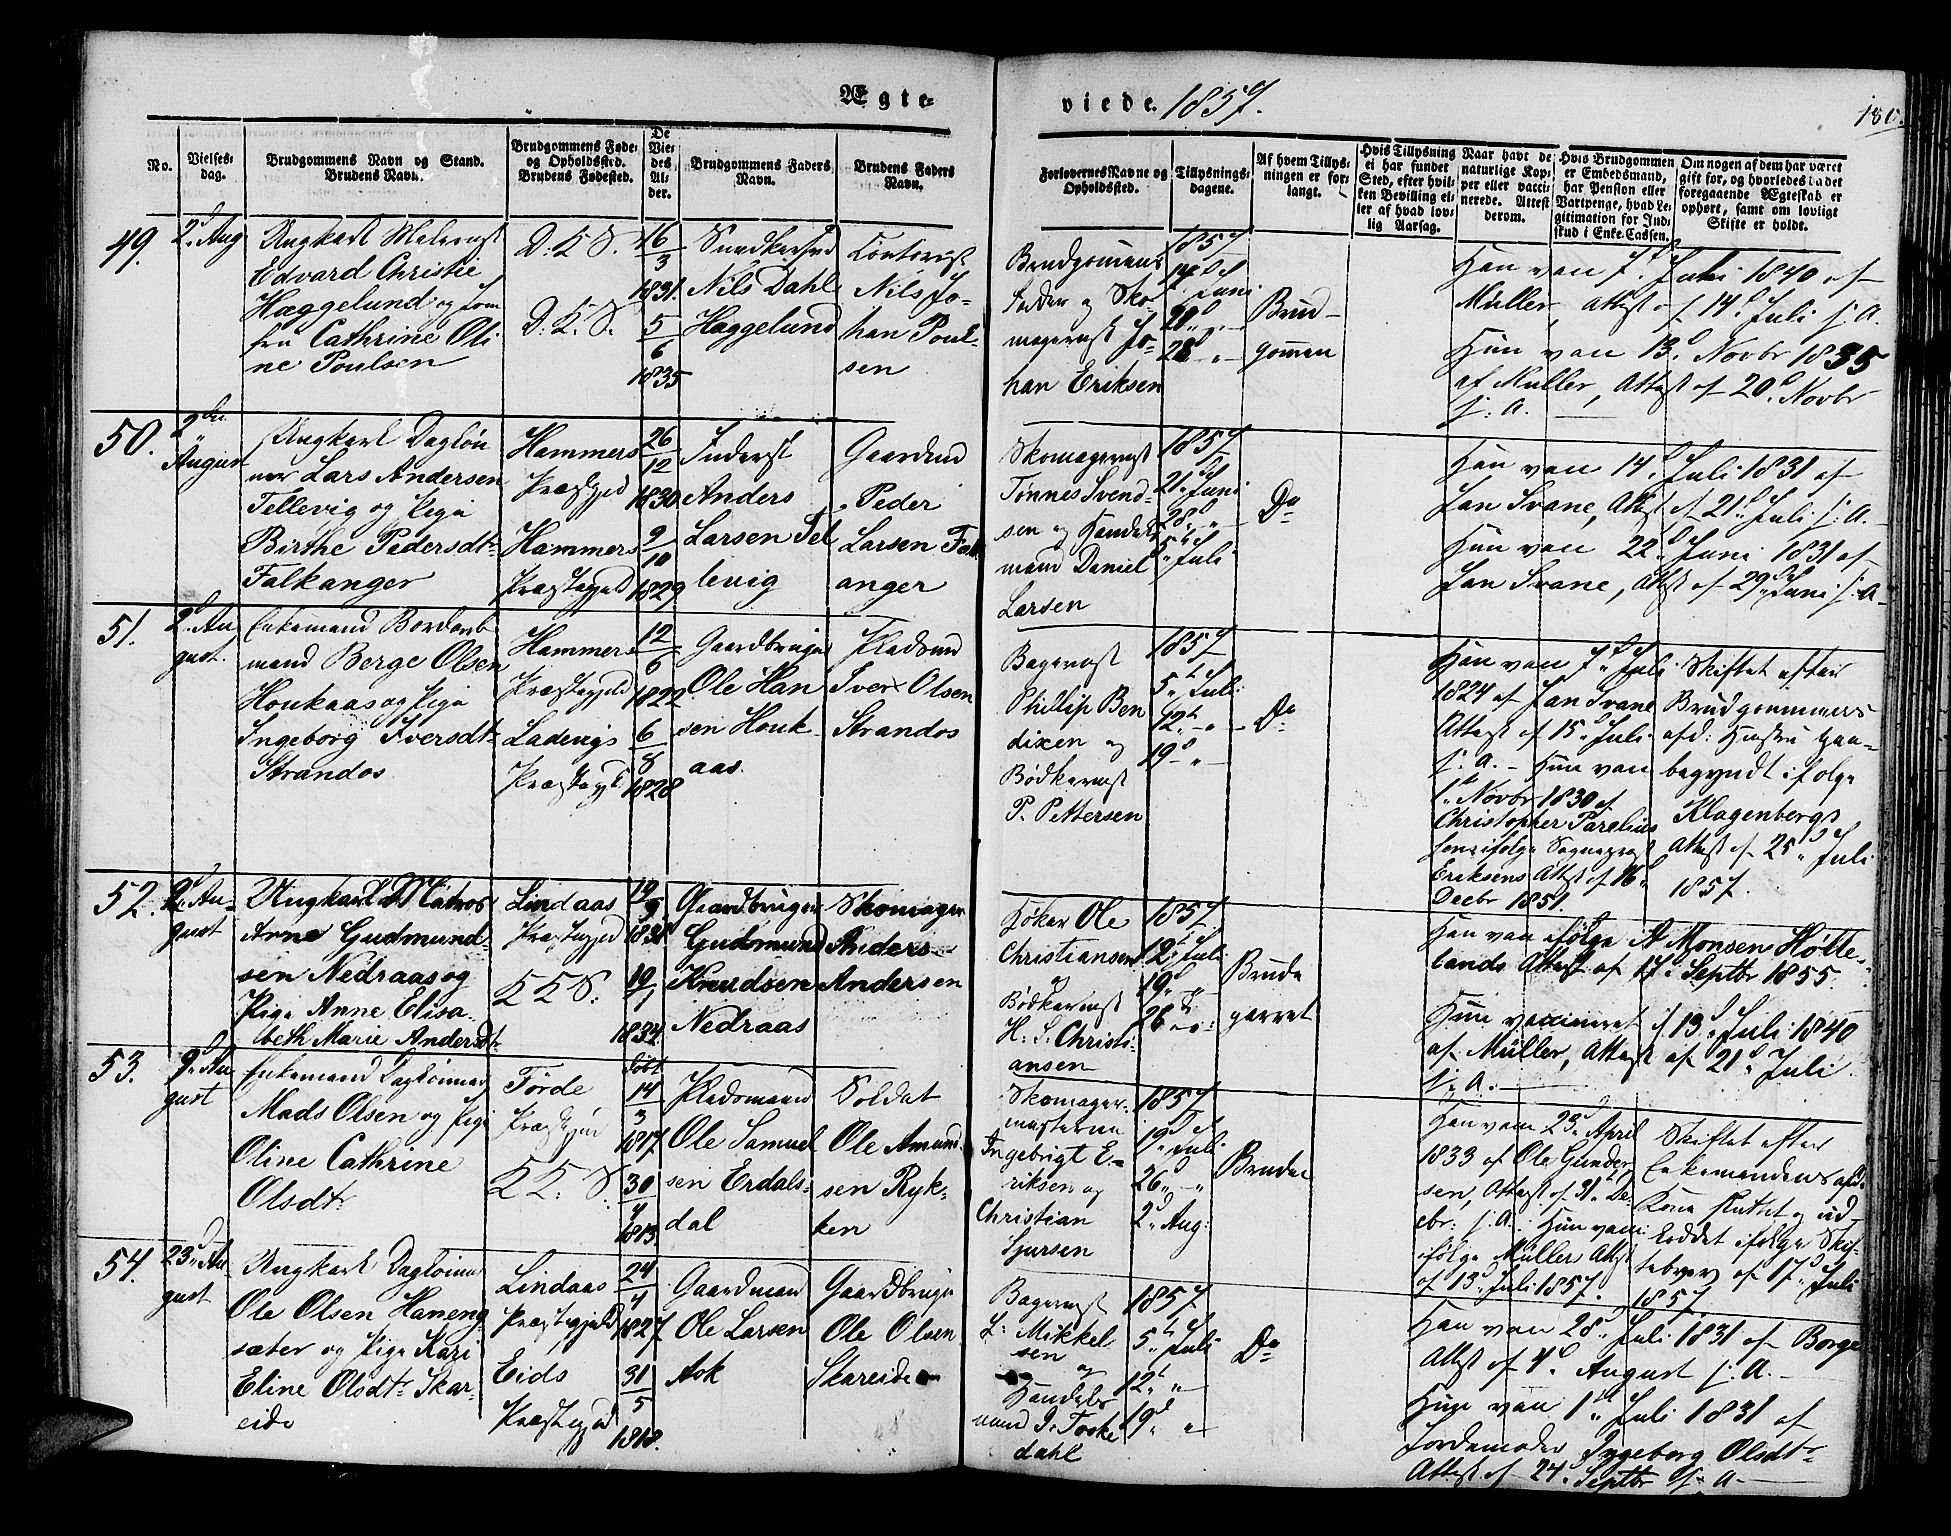 Ægte-
viede. 1857.
180.
No.
Vielses-
dag.
Brudgommens Navn og Stand.
Brudens Navn.
Brudgommens Føde-
og Opholdssted.
Brudens Fødested.
De
Vie-
des
Al-
der.
Brudgommens Faders
Navn.
Brudens Faders
Navn.
Forlovernes Navne og
Opholdssted.
Tillysnings-
dagene.
Af hvem Tillys-
ningen er for-
langt.
Hvis Tillysning
ei har fundet
Sted, efter hvil-
ken Bevilling el-
ler af hvad lov-
lig Aarsag.
Naar havt de
naturlige Kop-
per eller vacci-
nerede. Attest
derom.
Hvis Brudgommen
er Embedsmand,
har Pension eller
Vartpenge, hvad Le-
gitimation for Ind-
skud i Enke-Cassen.
Om nogen af dem har været
gift før, og hvorledes i da det
foregaaende Ægteskab er
ophørt, samt om lovligt
Skifte er holdt.
49.
2d Aug
Ungkarl Malersv
Edvard Christie
Hæggelund og Jom
fru Cathrine Oli
ne Poulsen
D: K S.
D: K. S.
16
3
1831.
5
6
1835
Snedkersvd
Nils Dahl
Hæggelund
Contorist
Nils Jo-
han Poul-
sen
Brudgomens
Fader og Sko
magermst Jo-
han Eriksen
1857
14d Juni
20d „ -
28d „ -
Brud-
gomen
Han vac 7d Juli 1840 af
Müller, Attest af 14d Juli s: A.
Hun vac 13d Novbr 1835
af Müller, Attest af 20d Novbr
s: A. -
50.
2den
August
Ungkarl Dagløn
ner Lars Andersen
Tellevig og Pige
Birthe Pedersdtr
Falkanger
Hammers
Præstegjeld
Hammers
Præstegjeld
26
12
1830
2
10
1829
Inderst
Anders
Larsen Tel
levig
Gaardmd
Peder
Larsen Falk
anger
Skomagermst
Tønnes Svend-
sen og Handels
mand Daniel
Larsen
1857
21d Juni
28d „ -
5te Juli
Do
Han vac 14d Juli 1831 af
Jan Svane, Attest af 21d Juli s: A. -
Hun vac 22d Juni 1831 af
Jan Svane, Attest af 29d Juni s: A -
51.
2d Au
gust.
Enkemand Bordarb
mand Berge Olsen
Houkaas og Pige
Ingeborg Iversdtr
Strandos
Hammers
Præstegjeld
Ladevigs
Præstegjeld
12
6
1822
6
8
1828
Gaardbruger
Ole Han
sen Houk-
aas.
Pladsmd
Iver Olsen
Strandos
Bagermst
Phillip Ben
dixen og
Bødkermst
P. Pettersen
1857
5te Juli
12te „ -
19d „ -
Do
Han vac 7d Juli
1824 af Jan Svane
Attest af 15d Juli
s: A. - Hun vac
1d Novbr 1830 af
Christopher Parelius
Eriksens Attest af 16d
Decbr 1851.
Skiftet efter
Brudgommens
afd: Hustru paa-
begyndt ifølge
Klagenbergs
Attest af 25d Juli
1857.
52.
9d Au-
gust
Ungkarl Matros
Arne Gudmund-
sen Nedraas og
Pige Anne Elisa-
beth Marie Andersdtr
Lindaas
Præstegjeld
K K S:
19
9
1831
19
1
1834.
Gaardbruger
Gudmund
Knudsen
Nedraas
Skomager
Anders
Andersen
Ole
Christiansen
Bødkermst
H: S. Christi-
ansen
1857.
12te Juli
19d „ -
26d „ -
Brude
parret
Han vac ifølge A Monsen Hølle-
lands Attest af 17d Septbr 1855.
Hun vaccineret d 13d Juli 1840
af Müller, Attest af 21d Juli
s: A. -
53.
9d Au
gust
Enkemand Daglønner
Mads Olsen og Pige
Oline Cathrine
Olsdtr
Førde
Præstegjeld
K K: S.
døbt
14
3
1817
30
4
1813
Pladsmand
Ole Samuel
sen Erdals-
dal
Soldat
Ole Amund-
sen Ryk-
ken
Skomager-
mesterne
Ingebrigt E-
riksen og
Christian
Sjursen
1857
19d Juli
26d „ -
2d Aug:
Brude
Han vac 23d April
1833 af Ole Gunder
sen, Attest af 31d De-
cbr: s: A. Hun vac:
ifølge Müllers Attest
af 13d Juli 1857.
Skiftet efter
Enkemandens afd:
Kone sluttet og ud-
loddet ifølge Skif-
tebrev af 17d Juli
1857
54.
23d Au-
gust
Ungkarl Daglønner
Ole Olsen Haneng
sæter og Pige Kari
Eline Olsdtr Skar-
eide
Lindaas
Præstegjeld
Eids
Præstegjeld
24
4
1827
31
5
1818.
Gaardmand
Ole Larsen
Ask
Gaardbruger
Ole Olsen
Skareide
Bagermst
L: Mikkel
sen og
Handels
mand J. Foske
dahl
1857
5te Juli
12te „ -
19d „ -
Do
Han vac 28d Juli 1831 af Borge
Attest af 4d August s: A. -
Hun vac 1d Juli 1831 af
Jordemoder Ingeborg Olsdtr
Attest af 24d Septbr s: A -